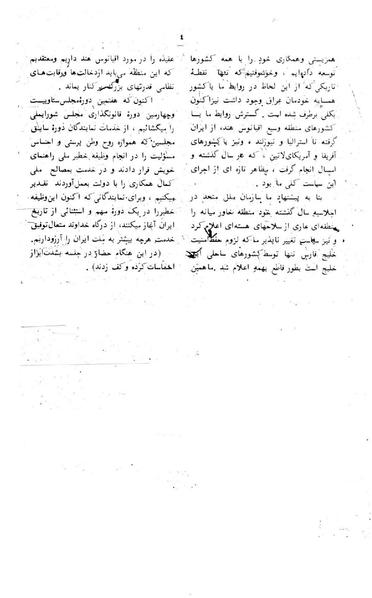 ٤
همزیستی وهمکاری خود را با همه کشورها
توسعه داده‌ایم ، وخوشوقتیم که تنها نقطه
تاریکی که از این لحاظ در روابط ما با کشور
همسایه خودمان عراق وجود داشت نیزاکنون
بکلی برطرف شده است . گسترش روابط ما با
کشورهای منطقه وسیع اقیانوس هند، از ایران
گرفته تا استرالیا و نیوزلند ، ونیز با کشورهای
آفریقا و آمریکای‌لاتین ، که هر سال گذشته و
امسال انجام گرفت ، مظاهر تازه ای از اجرای
این سیاست کلی ما بود .
بنا به پیشنهاد ما سازمان ملل متحد در
اجلاسیه سال گذشته خود منطقه خاور میانه را
منطقه‌ای عاری از سلاحهای هسته‌ای اعلام کرد
و نیز سیاست تغییر ناپذیر ما که لزوم حفظ امنیت
خلیج فارس تنها توسط کشورهای ساحلی این
خلیج است بطور قاطع بهمه اعلام شد . ما همین
عقیده را در مورد اقیانوس هند داریم ومعتقدیم
که این منطقه می‌باید ازدخالت‌ها ورقابت‌های
نظامی قدرتهای بزرگ بر کنار بماند .
اکنون که هفتمین دورهٔ مجلس سناوبیست
وچهارمین دورهٔ قانونگذاری مجلس شورایملی
را میگشائیم ، از خدمات نمایندگان دورهٔ سابق
مجلسین که همواره روح وطن پرستی و احساس
مسئولیت را در انجام وظیفه خطیر ملی راهنمای
خویش قرار دادند و در خدمت بمصالح ملی
کمال همکاری را با دولت بعمل آوردند تقدیر
میکنیم ، وبرای نمایندگانی که اکنون این وظیفه
خطیر را در یک دورهٔ مهم و استثنائی از تاریخ
ایران آغاز میکنند، از درگاه خداوند متعال توفیق
خدمت هرچه بیشتر به ملت ایران را آرزوداریم.
( در این هنگام حضار در جلسه بشدت ابراز
احساسات کرده و کف زدند ) .